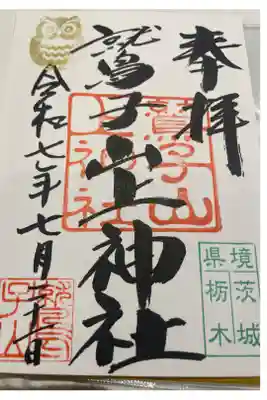 奉拝
鷲子山上神社
令和七年七月二十一日
鷲子山
上神社
境茨城
県栃木
鷲子山